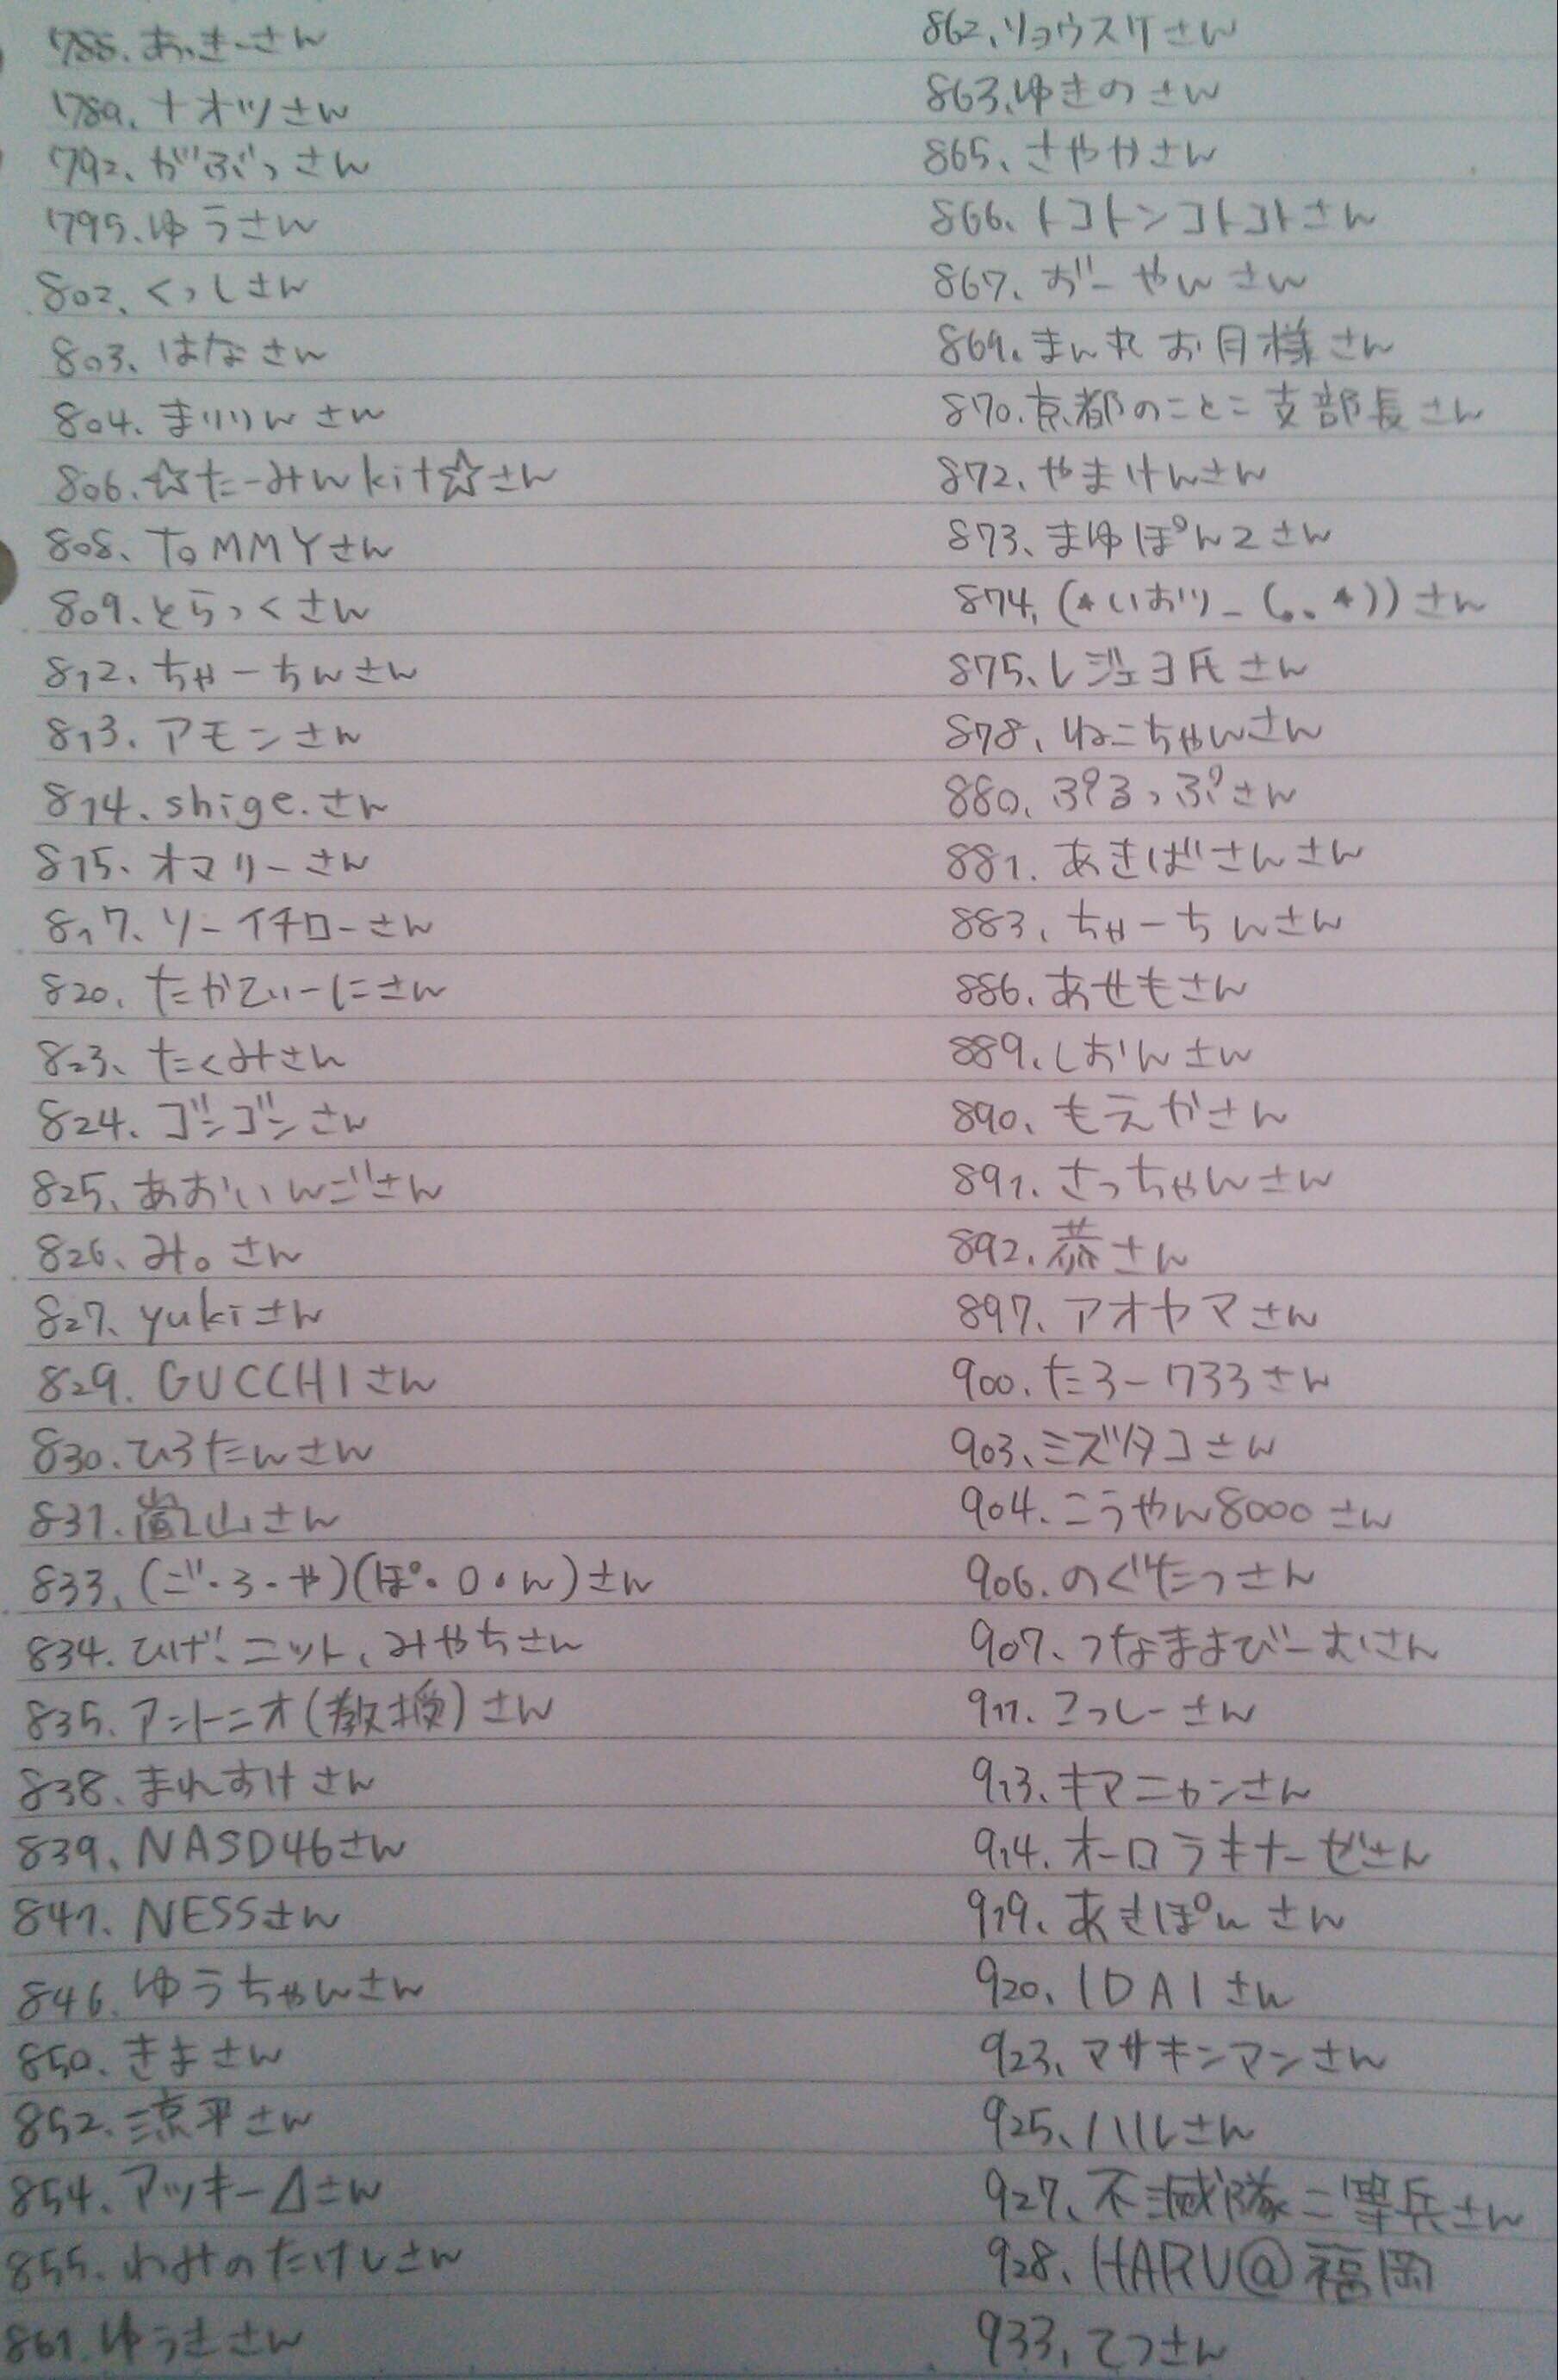 788、あっきーさん
789、ナオツさん
792、がぶっさん
795、ゆうさん
802、くっしさん
803、はなさん
804、まりりんさん
806、☆たーみんkit☆さん
808、TOMMYさん
809、とらっくさん
812、ちゃーちんさん
813、アモンさん
814、shige.さん
815、オマリーさん
817、ソーイチローさん
820、たかてぃーにさん
823、たくみさん
824、ゴンゴンさん
825、あおいんごさん
826、み。さん
827、yukiさん
829、GUCCHIさん
830、ひろたんさん
831、嵐山さん
833、(ご・3・や)(ぽ・O・ん)さん
834、ひげ、ニット、みやちさん
835、アントニオ(教授)さん
838、まれすけさん
839、NASD46さん
841、NESSさん
846、ゆうちゃんさん
850、きまさん
852、涼平さん
854、アッキーΔさん
855、わみのたけしさん
861、ゆうきさん
862、リョウスケさん
863、ゆきのさん
865、さやかさん
866、トコトンコトコトさん
867、おーやんさん
869、まん丸お月様さん
870、京都のことこ支部長さん
872、やまけんさん
873、まゆぽん2さん
874、(*いおり_(。、*))さん
875、レジェヨ氏さん
878、ねこちゃんさん
880、ぷるっぷさん
881、あきばさんさん
883、ちゃーちんさん
886、あせもさん
889、しおんさん
890、もえかさん
891、さっちゃんさん
892、恭さん
897、アオヤマさん
900、たろー733さん
903、ミズタコさん
904、こうやん8000さん
906、のぐたつさん
907、つなまよびーむさん
911、こっしーさん
913、キマニャンさん
914、オーロラキナーゼさん
919、あきぽんさん
920、IDAIさん
923、マサキンマンさん
925、ハルさん
927、不滅隊二等兵さん
928、HARU@福岡
933、てつさん